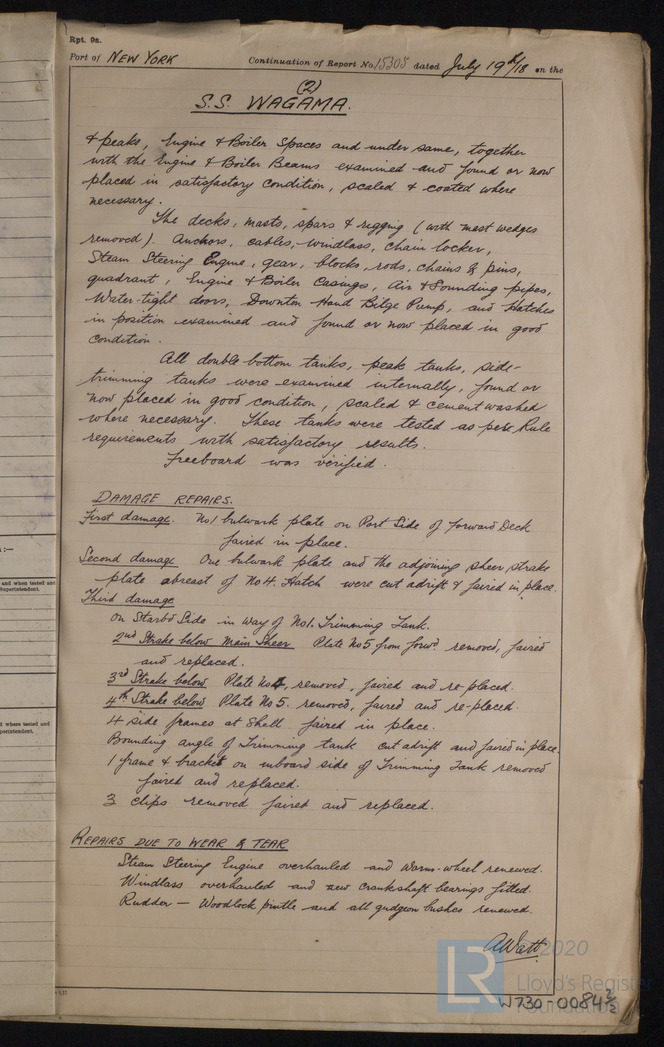 Rpt. 9a.
Port of NEW YORK Continuation of Report No. 15305 dated July 19th/18 on the
(2)
S.S. WAGAMA.
& peaks, Engine & Boiler Spaces and under same, together
with the Engine & Boiler Beams examined and found or now
placed in satisfactory condition, scaled & coated where
necessary.
The decks, masts, spars & rigging (with mast wedges
removed). Anchors, cables, windlass, chain locker,
Steam Steering Engine, gear, blocks, rods, chains & pins,
quadrant, Engine & Boiler Casings, Air & Sounding pipes,
Water-tight doors, Downton Hand Bilge Pump, and Hatches
in position examined and found or now placed in good
condition.
All double bottom tanks, peak tanks, side-
trimming tanks were examined internally, found or
now placed in good condition, scaled & cement washed
where necessary. These tanks were tested as per Rule
requirements with satisfactory results.
Freeboard was verified.
DAMAGE REPAIRS.
First damage. No 1 bulwark plate on Port Side of Forward Deck
faired in place.
Second damage One bulwark plate and the adjoining sheer strake
plate abreast of No 4. Hatch were cut adrift & faired in place.
Third damage
On Starbd Side in way of No 1. Trimming Tank.
2nd Strake below Main Sheer Plate No 5 from forwd. removed, faired
and replaced.
3rd Strake below Plate No 4, removed, faired and re-placed.
4th Strake below Plate No 5. removed, faired and re-placed.
4 side frames at Shell faired in place.
Bounding angle of Trimming tank cut adrift and faired in place.
1 frame & bracket on inboard side of Trimming Tank removed
faired and replaced.
3 clips removed faired and replaced.
REPAIRS DUE TO WEAR & TEAR
Steam Steering Engine overhauled and worm-wheel renewed.
Windlass overhauled and new crankshaft bearings fitted.
Rudder — Woodlock pintle and all gudgeon bushes renewed.
A Watt
© 2020
LR
Lloyd's Register
Foundation
W730-0084 2/2
and when tested and
Superintendent.
where tested and